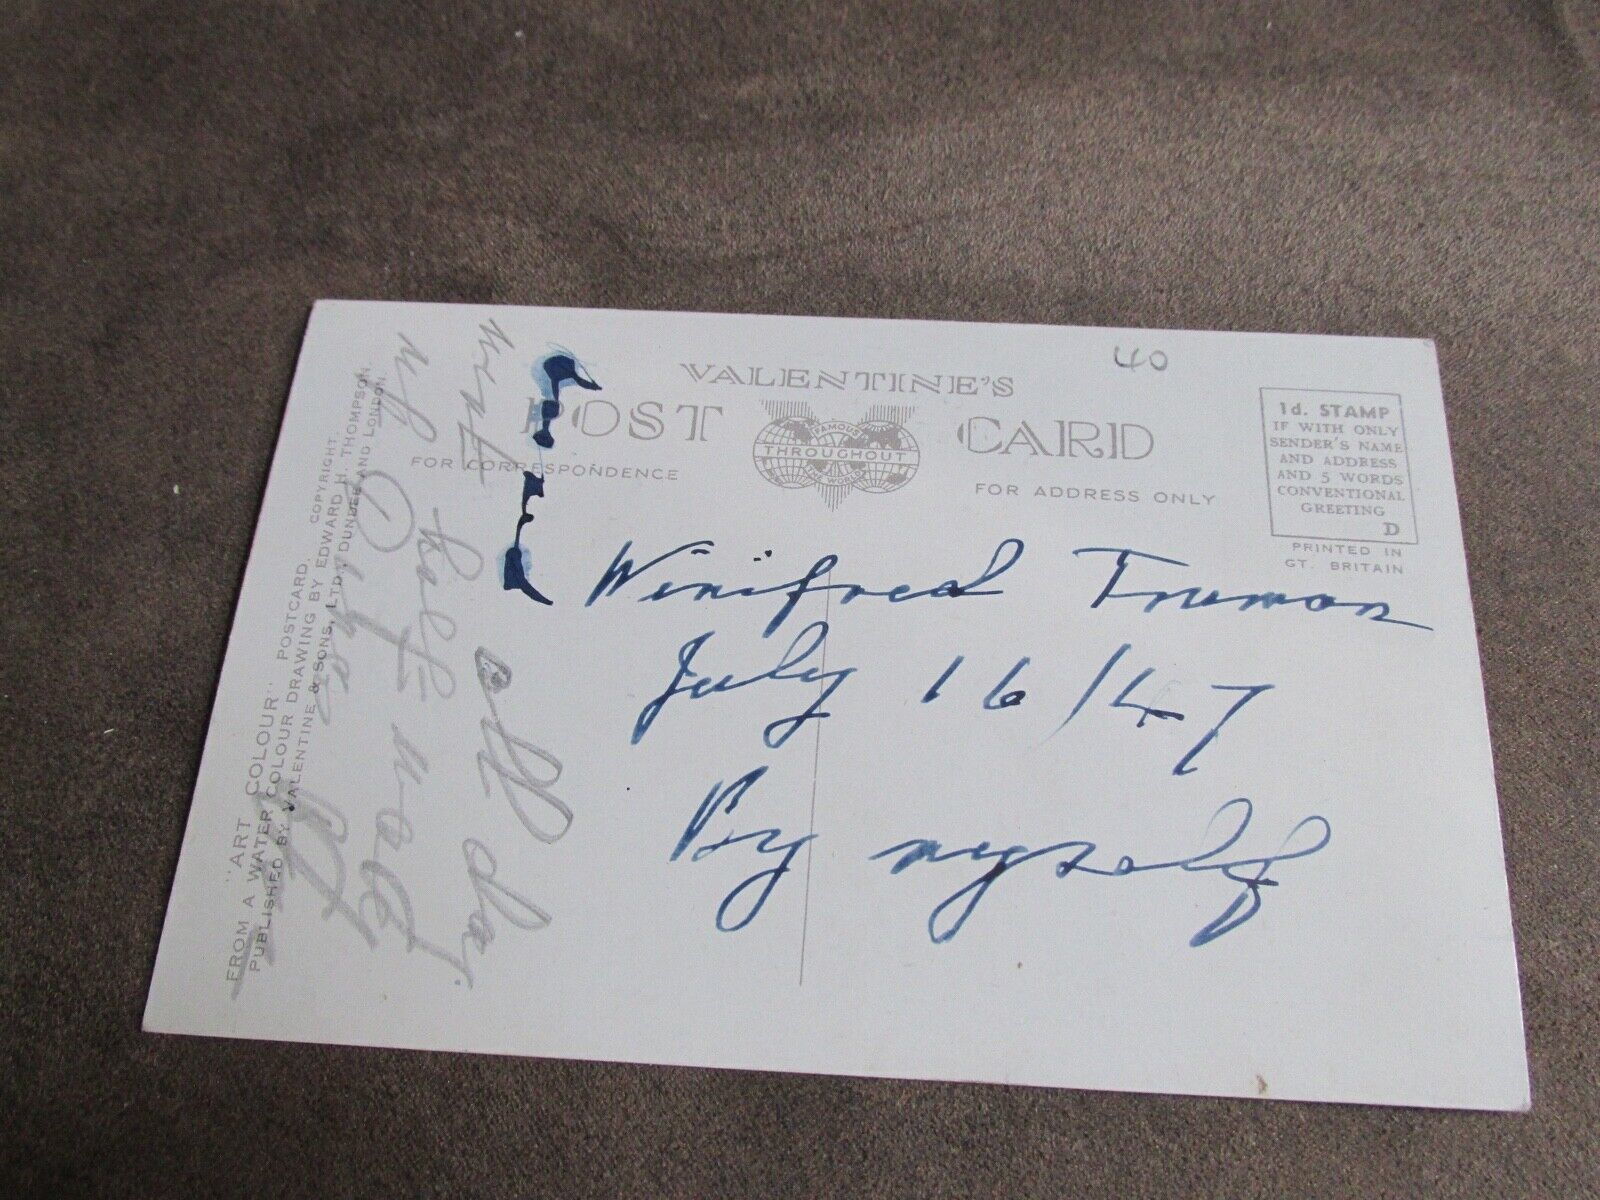 VALENTINE'S
POST CARD
FAMOUS
THROUGHOUT
THE WORLD
FOR CORRESPONDENCE
FOR ADDRESS ONLY
40
1d. STAMP
IF WITH ONLY
SENDER'S NAME
AND ADDRESS
AND 5 WORDS
CONVENTIONAL
GREETING
D
PRINTED IN
GT. BRITAIN
Winifred Truman
July 16/47
By myself
"ART COLOUR" POSTCARD. COPYRIGHT.
FROM A WATER COLOUR DRAWING BY EDWARD H. THOMPSON
PUBLISHED BY VALENTINE & SONS, LTD., DUNDEE AND LONDON.
went
all day